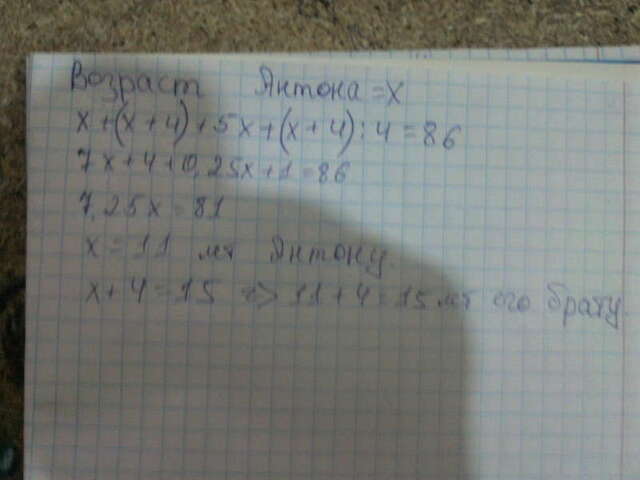 Возраст Антона = x
x+(x+4)+5x+(x+4):4=86
7x+4+0,25x+1=86
7,25x=81
x=11 лет Антону.
x+4=15 => 11+4=15 лет его брату.